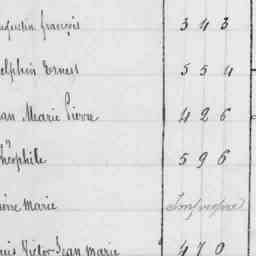 augustin françois 343
elphin Ernest 554
an Marie Pierre 426
Théophile 596
Marie
Victor Jean Marie 470